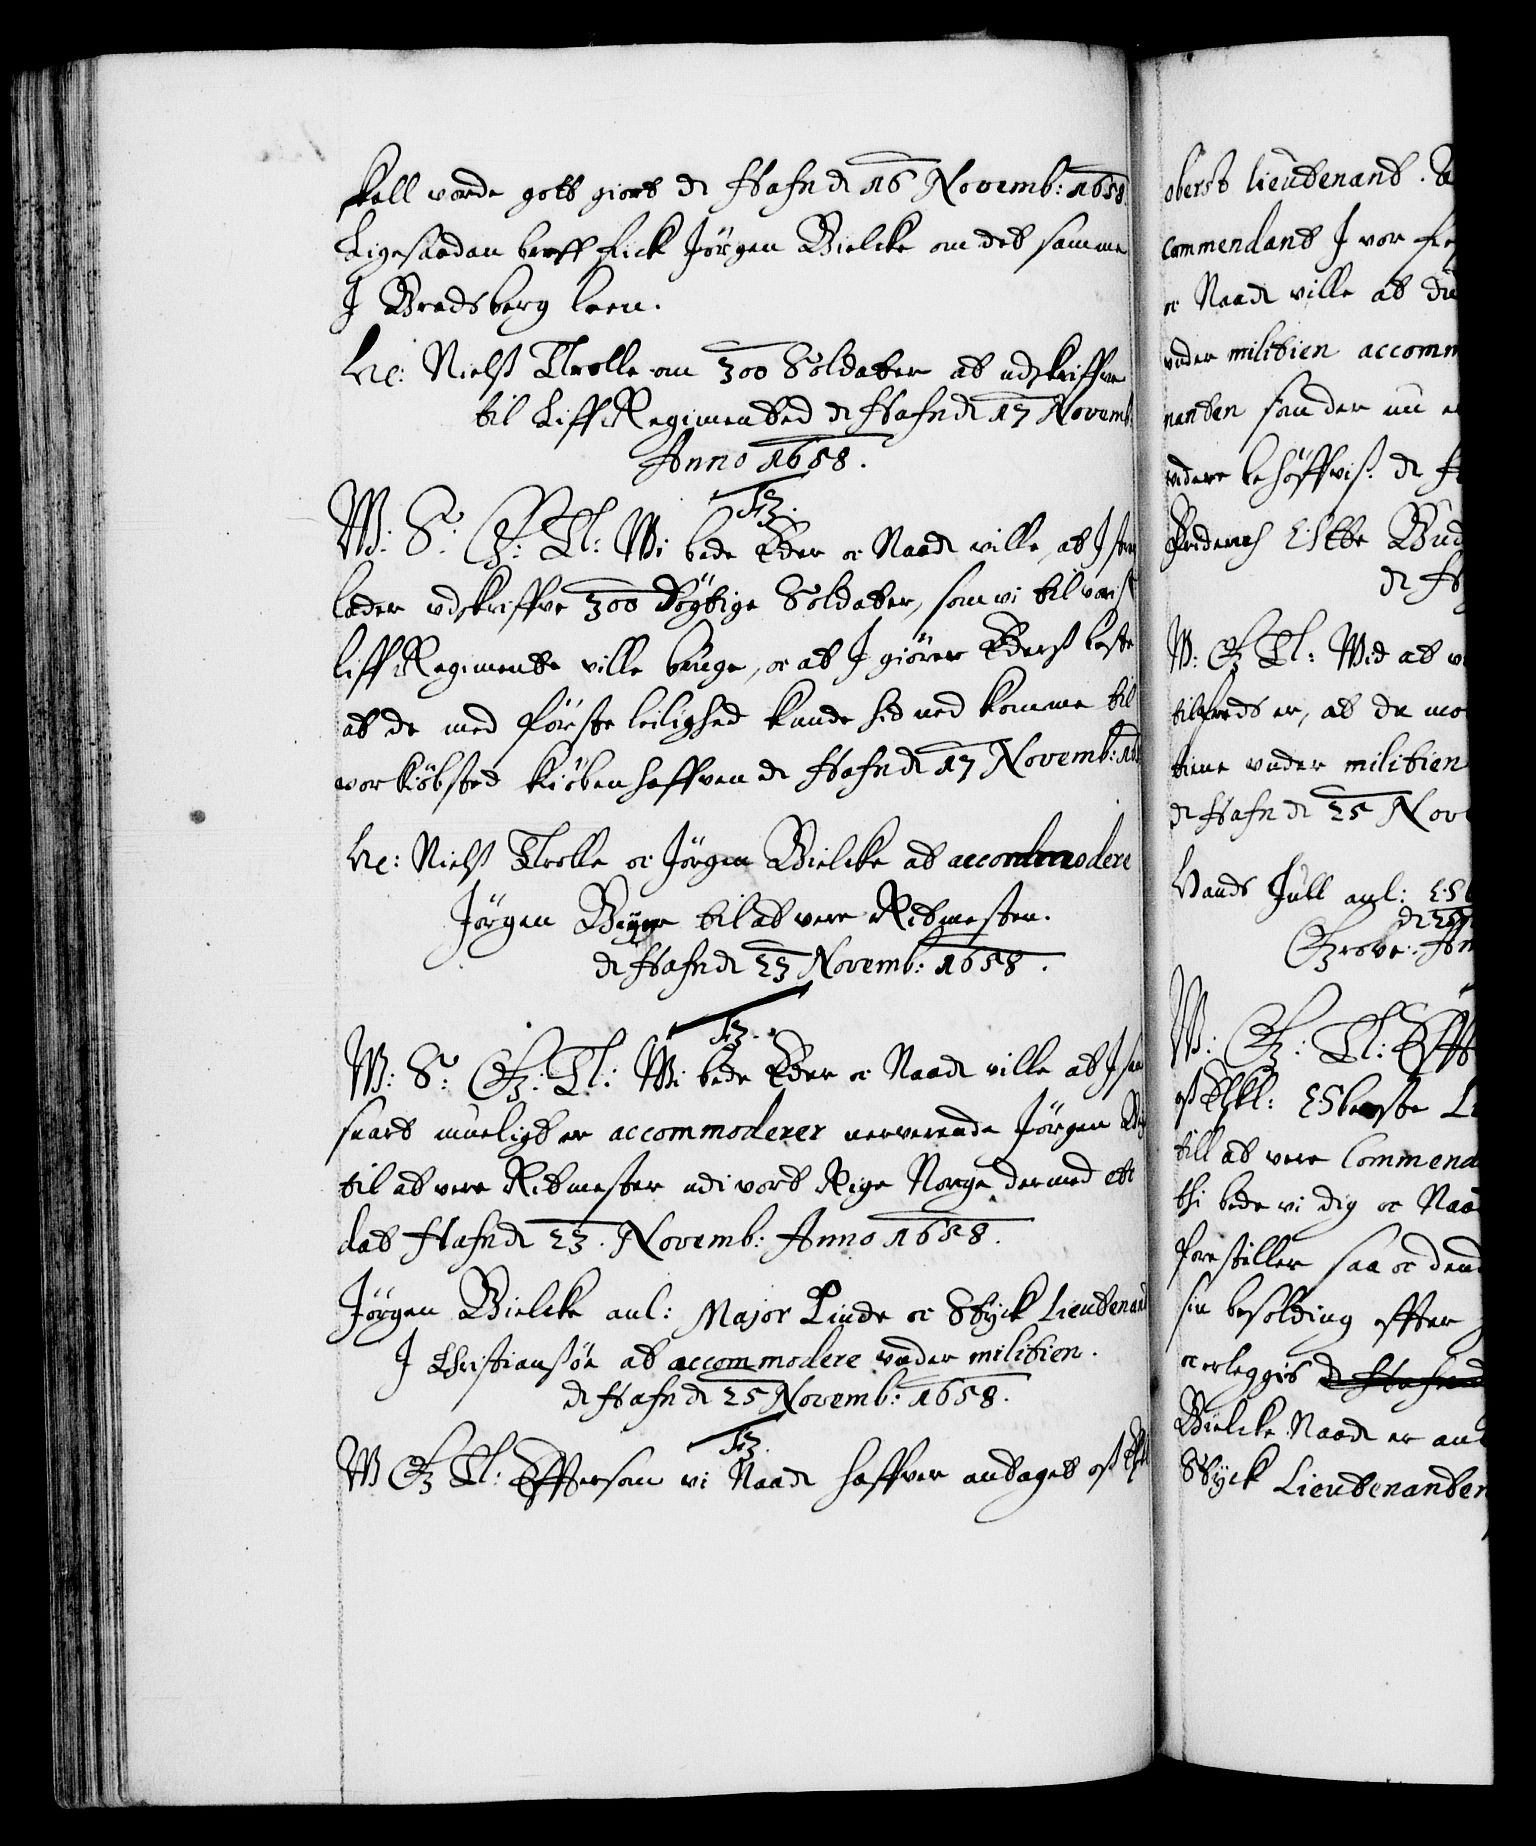 skall vorde gott giort de Hafn d 16 Novemb: 1658.
Ligesaadan breff fick Jörgen Bielcke om det samme
J Bradsberg leen.
Hr: Nielß Trolle om 300 Soldater at udskriffve
til Liff Regimented de Hafn d 17 Novemb:
Anno 1658.
F3.
W: S: G: T: Wi bede Eder oc Naad ville, at J
lader udskriffve 300 Dögtige Soldater, som vi til vorß
liff Regimente ville bruge, oc at J giörer Ederß beste
at de med förste leilighed kunde hid ned komme til
vor kiöbsted Kiöbenhaffven de Hafn d 17 Novemb:
Hr: Nielß Trolle oc Jörgen Bielcke at accommodere
Jörgen Beyer til at vere Ritmester.
de Hafn d 23 Novemb: 1658.
F3.
W: S: G: T: Wi bede Eder oc Naad ville at J
snart mueligt er accommoderer nerverende Jörgen
til at vere Ritmester udi vort Rige Norge dermed
dat Hafn d 23. Novemb: Anno 1658.
Jörgen Bielcke anl: Major Linde oc Styck Lieutenant
J Christiansöe at accommodere under militien.
de Hafn d 25 Novemb: 1658.
F3.
W G T: Efftersom vi Naad haffver antaget oß Elskl
oberst lieutenant.
commendant J vor
oc Naad ville at du
under militien accomm
nanten som der nu
videre behöffvis. de
Friderich
de
W: G T: Wid at
tilfreds er, at du
tiene under militien
de Hafn d 25 Nov
Hands Jull anl:
de 25
Grove: An
W: G: T: Efft
oß Elskl:
till at vere Commend
thi bede vi dig oc Naad
forestiller saa oc dend
sin besolding effter
oc erleggis de Hafn d
Bielcke Naad er an
Styck Lieutenanten